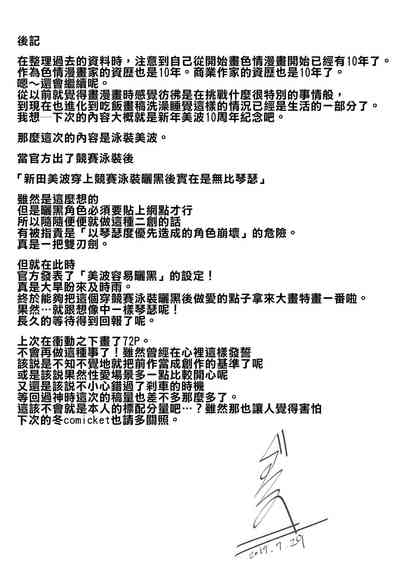 後記
在整理過去的資料時，注意到自己從開始畫色情漫畫開始已經有10年了。
作為色情漫畫家的資歷也是10年。商業作家的資歷也是10年了。
嗯～還會繼續呢。
從以前就覺得畫漫畫時感覺彷彿是在挑戰什麼很特別的事情般，
到現在也進化到吃飯畫稿洗澡睡覺這樣的情況已經是生活的一部分了。
我想一下次的內容大概就是新年美波10周年紀念吧。
那麼這次的內容是泳裝美波。
當官方出了競賽泳裝後
「新田美波穿上競賽泳裝曬黑後實在是無比琴瑟」
雖然是這麼想的
但是曬黑角色必須要貼上網點才行
所以隨隨便便就做這種二創的話
有被指責是「以琴瑟度優先造成的角色崩壞」的危險。
真是一把雙刃劍。
但就在此時
官方發表了「美波容易曬黑」的設定！
真是大旱盼來及時雨。
終於能夠把這個穿競賽泳裝曬黑後做愛的點子拿來大畫特畫一番啦。
果然…就跟想像中一樣琴瑟呢！
長久的等待得到回報了呢。
上次在衝動之下畫了72P。
不會再做這種事了！雖然曾經在心裡這樣發誓
該說是不知不覺地就把前作當成創作的基準了呢
或是該說果然性愛場景多一點比較開心呢
又還是該說不小心錯過了剎車的時機
等回過神時這次的稿量也差不多那麼多了。
這該不會就是本人的標配分量吧…？雖然那也讓人覺得害怕
下次的冬comicket也請多關照。
2017.7.29